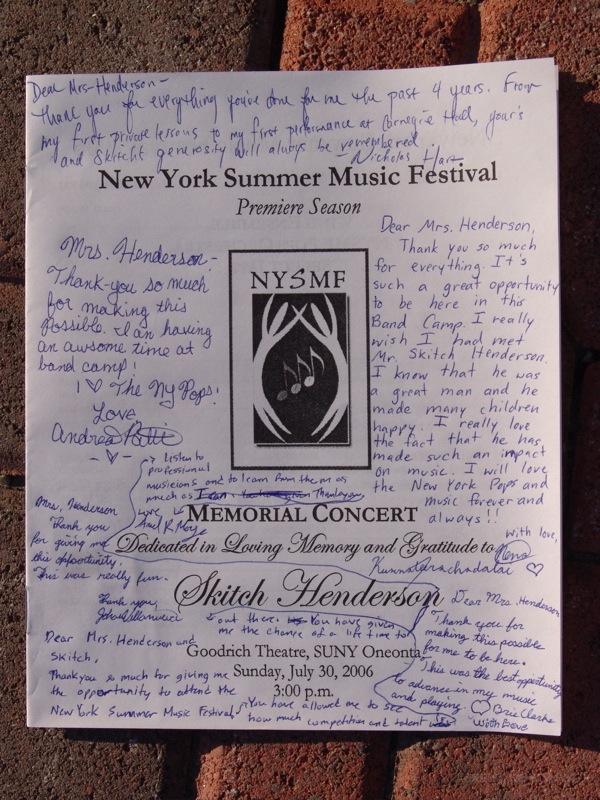 Dear Mrs. Henderson -
Thank you for everything you've done for me the past 4 years. From
my first private lessons to my first performance at Carnegie Hall, your's
and Skitch's generosity will always be remembered
- Nicholas Hart
New York Summer Music Festival
Premiere Season
Mrs. Henderson -
Thank-you so much
for making this
Possible. I an having
an awsome time at
band camp!
I ♡ The NY Pops!
Love
Andrea
- ♡ -
NYSMF
Dear Mrs. Henderson,
Thank you so much
for everything. It's
such a great opportunity
to be here in this
Band Camp. I really
wish I had met
Mr. Skitch Henderson.
I know that he was
a great man and he
made many children
happy. I really love
the fact that he has
made such an impact
on music. I will love
the New York Pops and
music forever and
always!!
With love,
♡
Mrs. Henderson
Thank you
for giving me
this opportunity.
This was really fun.
Thank you,
MEMORIAL CONCERT
Dedicated in Loving Memory and Gratitude to
Skitch Henderson
Goodrich Theatre, SUNY Oneonta
Sunday, July 30, 2006
3:00 p.m.
Dear Mrs. Henderson and
Skitch,
Thankyou so much for giving me
the opportunity to attend the
New York Summer Music Festival.
You have allowed me to see
how much competition and talent
out there. You have given
me the chance of a life time to
Listen to
professional
musicians and to learn from them as
much as I can. Thankyou,
Love
Dear Mrs. Henderson
Thank you for
making this possible
for me to be here.
This was the best opportunity
to advance in my music
and playing.
♡ Brie Clarke